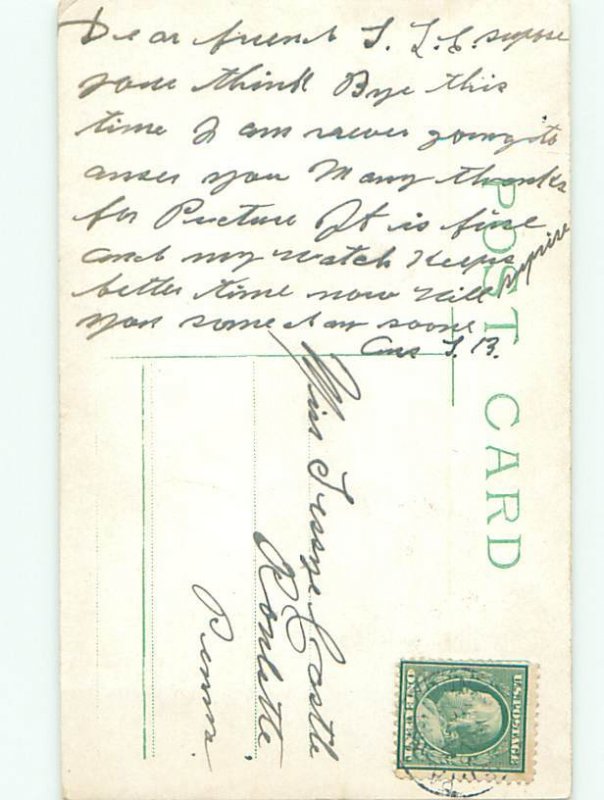 Dear friend T. L. C. supose
you think Bye this
time I am never going to
anser you Many thanks
for Picture It is fine
and my watch Keeps
better time now Will suprise
you some day soone
Ans J. B.
POST CARD
Miss Tressye Castle
Roulette
Penna.
U.S. POSTAGE
ONE CENT